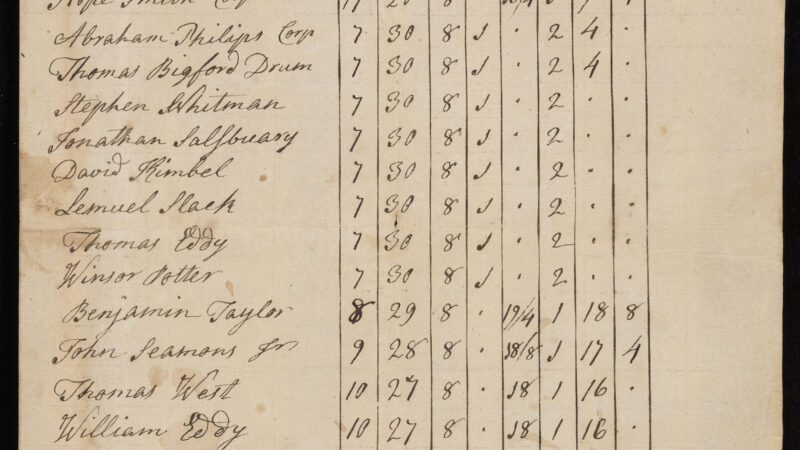 Abraham Philips Corp 7 30 8 1 · 2 4 ·
Thomas Bigford Drum 7 30 8 1 · 2 4 ·
Stephen Whitman 7 30 8 1 · 2 · ·
Jonathan Salsbuary 7 30 8 1 · 2 · ·
David Kimbel 7 30 8 1 · 2 · ·
Lemuel Slack 7 30 8 1 · 2 · ·
Thomas Eddy 7 30 8 1 · 2 · ·
Winsor Potter 7 30 8 1 · 2 · ·
Benjamin Taylor 8 29 8 · 19/4 1 18 8
John Seamons Jr 9 28 8 · 18/8 1 17 4
Thomas West 10 27 8 · 18 1 16 ·
William Eddy 10 27 8 · 18 1 16 ·